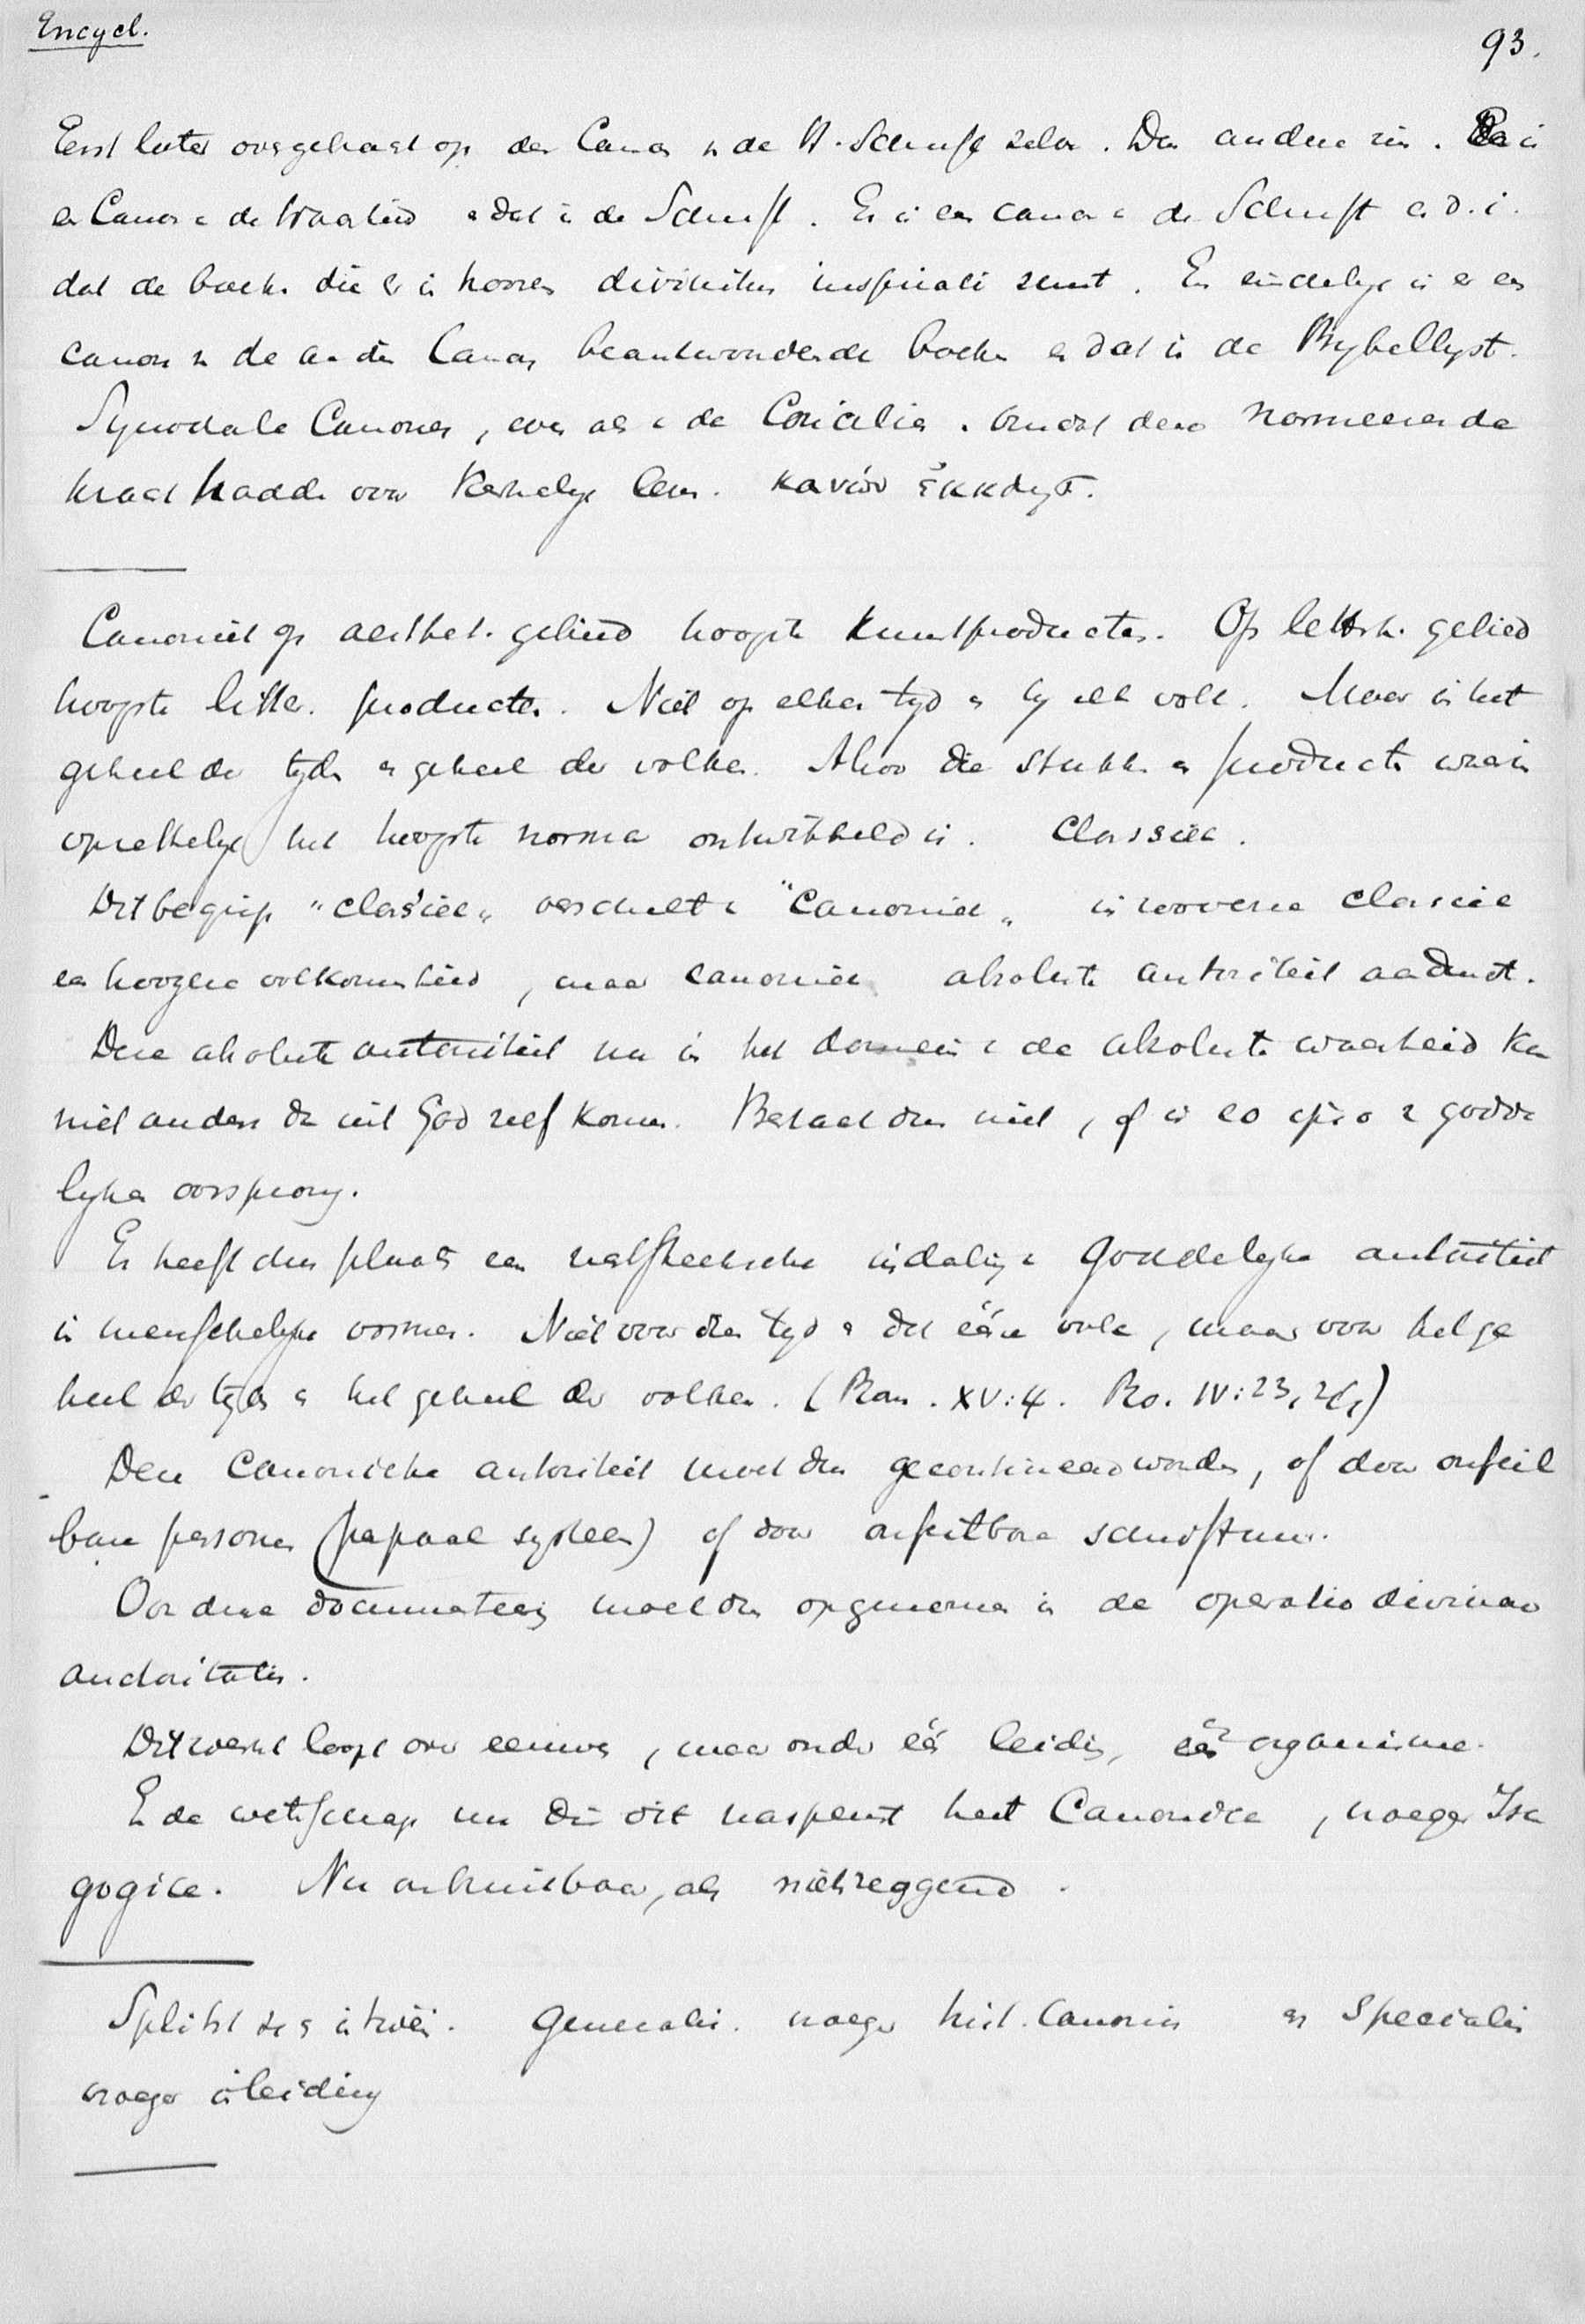 Encycl.
93.
Eerst later overgebracht op den Canon v de H. Schrift zelve. Dan andere zin. Er is
een Canon v de Waarheid en dat is de Schrift. Er is een canon v de Schrift en d.i.
dat de boeken die er in hooren divinitus inspirati sunt. En eindelijk is er een
canon v de aan dien Canon beantwoordende boeken en dat is de Bybellyst.
Synodale Canones, even als v de Concilien. omdat deze normeerende
kracht hadden voor Kerkelyk leven. κανών ἐκκλησ.
Canoniek op aesthet. gebied hoogste kunstproducten. Op letterk. gebied
hoogste litter. producten. Niet op elken tyd en by elk volk. Maar in het
geheel der tyden en geheel der volken. Alzoo die stukken en producten waarin
opvolkelyk het hoogste norma ontwikkeld is. Classiek.
Dit begrip "classiek" verschilt v "Canoniek" in zooverre classiek
een hoogere volkomenheid, maar canoniek absolute autoriteit aanduidt.
Deze absolute autoriteit nu in het domein v de absolute waarheid kan
niet anders dan uit God zelf komen. Bestaat dus niet, of is eo ipso v godde
lyken oorsprong.
Er heeft dus plaats een rechtstreeksche indaling v Goddelyke autoriteit
in menschelyke vormen. Niet voor één tyd en dat ééne volk, maar voor het ge
heel der tyden en het geheel der volken. (Rom. XV:4. Ro. IV:23, 24)
Deze Canonieke autoriteit moet dus gecontinueerd worden, of door onfeil
bare personen (papaal systeem) of door onfeilbare schriftuur.
Ook deze documenteering moet dus opgenomen in de operatio divinae
auctoritatis.
Dit werk loopt over eeuwen, maar onder één leiding, één organisme.
En de wetenschap nu die dit naspeurt heet Canoniek, vroeger Isa
gogiek. Nu onbruikbaar, als nietszeggend.
Splitst zich in tweeën. Generalis. vroeger hist. Canonis en Specialis
vroeger inleiding